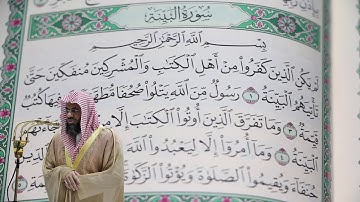 سُورَةُ البَيِّنَةِ
بِسْمِ اللَّهِ الرَّحْمَٰنِ الرَّحِيمِ
لَمْ يَكُنِ الَّذِينَ كَفَرُوا مِنْ أَهْلِ الْكِتَابِ وَالْمُشْرِكِينَ مُنفَكِّينَ حَتَّىٰ
تَأْتِيَهُمُ الْبَيِّنَةُ ١ رَسُولٌ مِّنَ اللَّهِ يَتْلُوا صُحُفًا مُّطَهَّرَةً ٢ فِيهَا كُتُبٌ
قَيِّمَةٌ ٣ وَمَا تَفَرَّقَ الَّذِينَ أُوتُوا الْكِتَابَ إِلَّا مِن جَاءَتْهُمُ
الْبَيِّنَةُ ٤ وَمَا أُمِرُوا إِلَّا لِيَعْبُدُوا اللَّهَ
حُنَفَاءَ وَيُقِيمُوا الصَّلَوٰةَ وَيُؤْتُوا الزَّكَوٰةَ